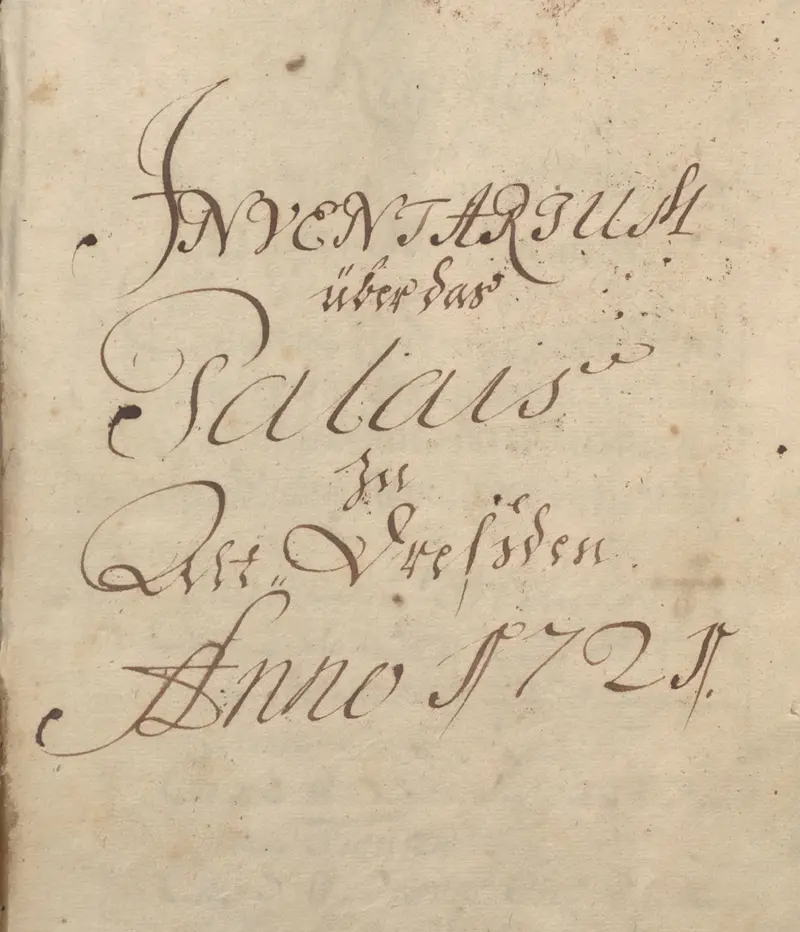 INVENTARIUM
über das
Palais
zu
Alt-Dreßden.
Anno 1721.